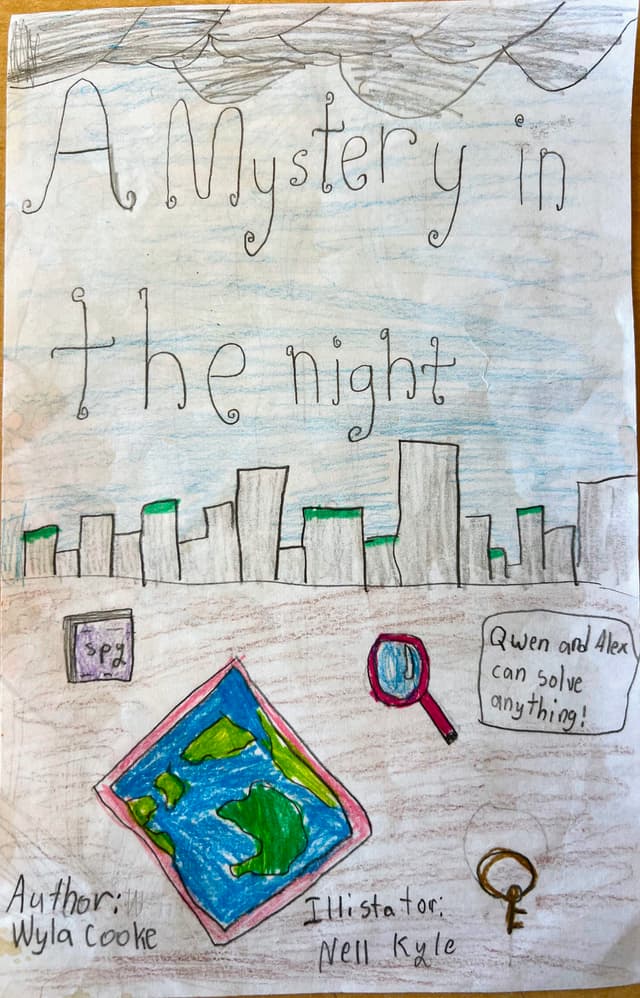 A Mystery in
the night
spy
Qwen and Alex
can solve
anything!
Author:
Wyla Cooke
Illistator:
Nell Kyle